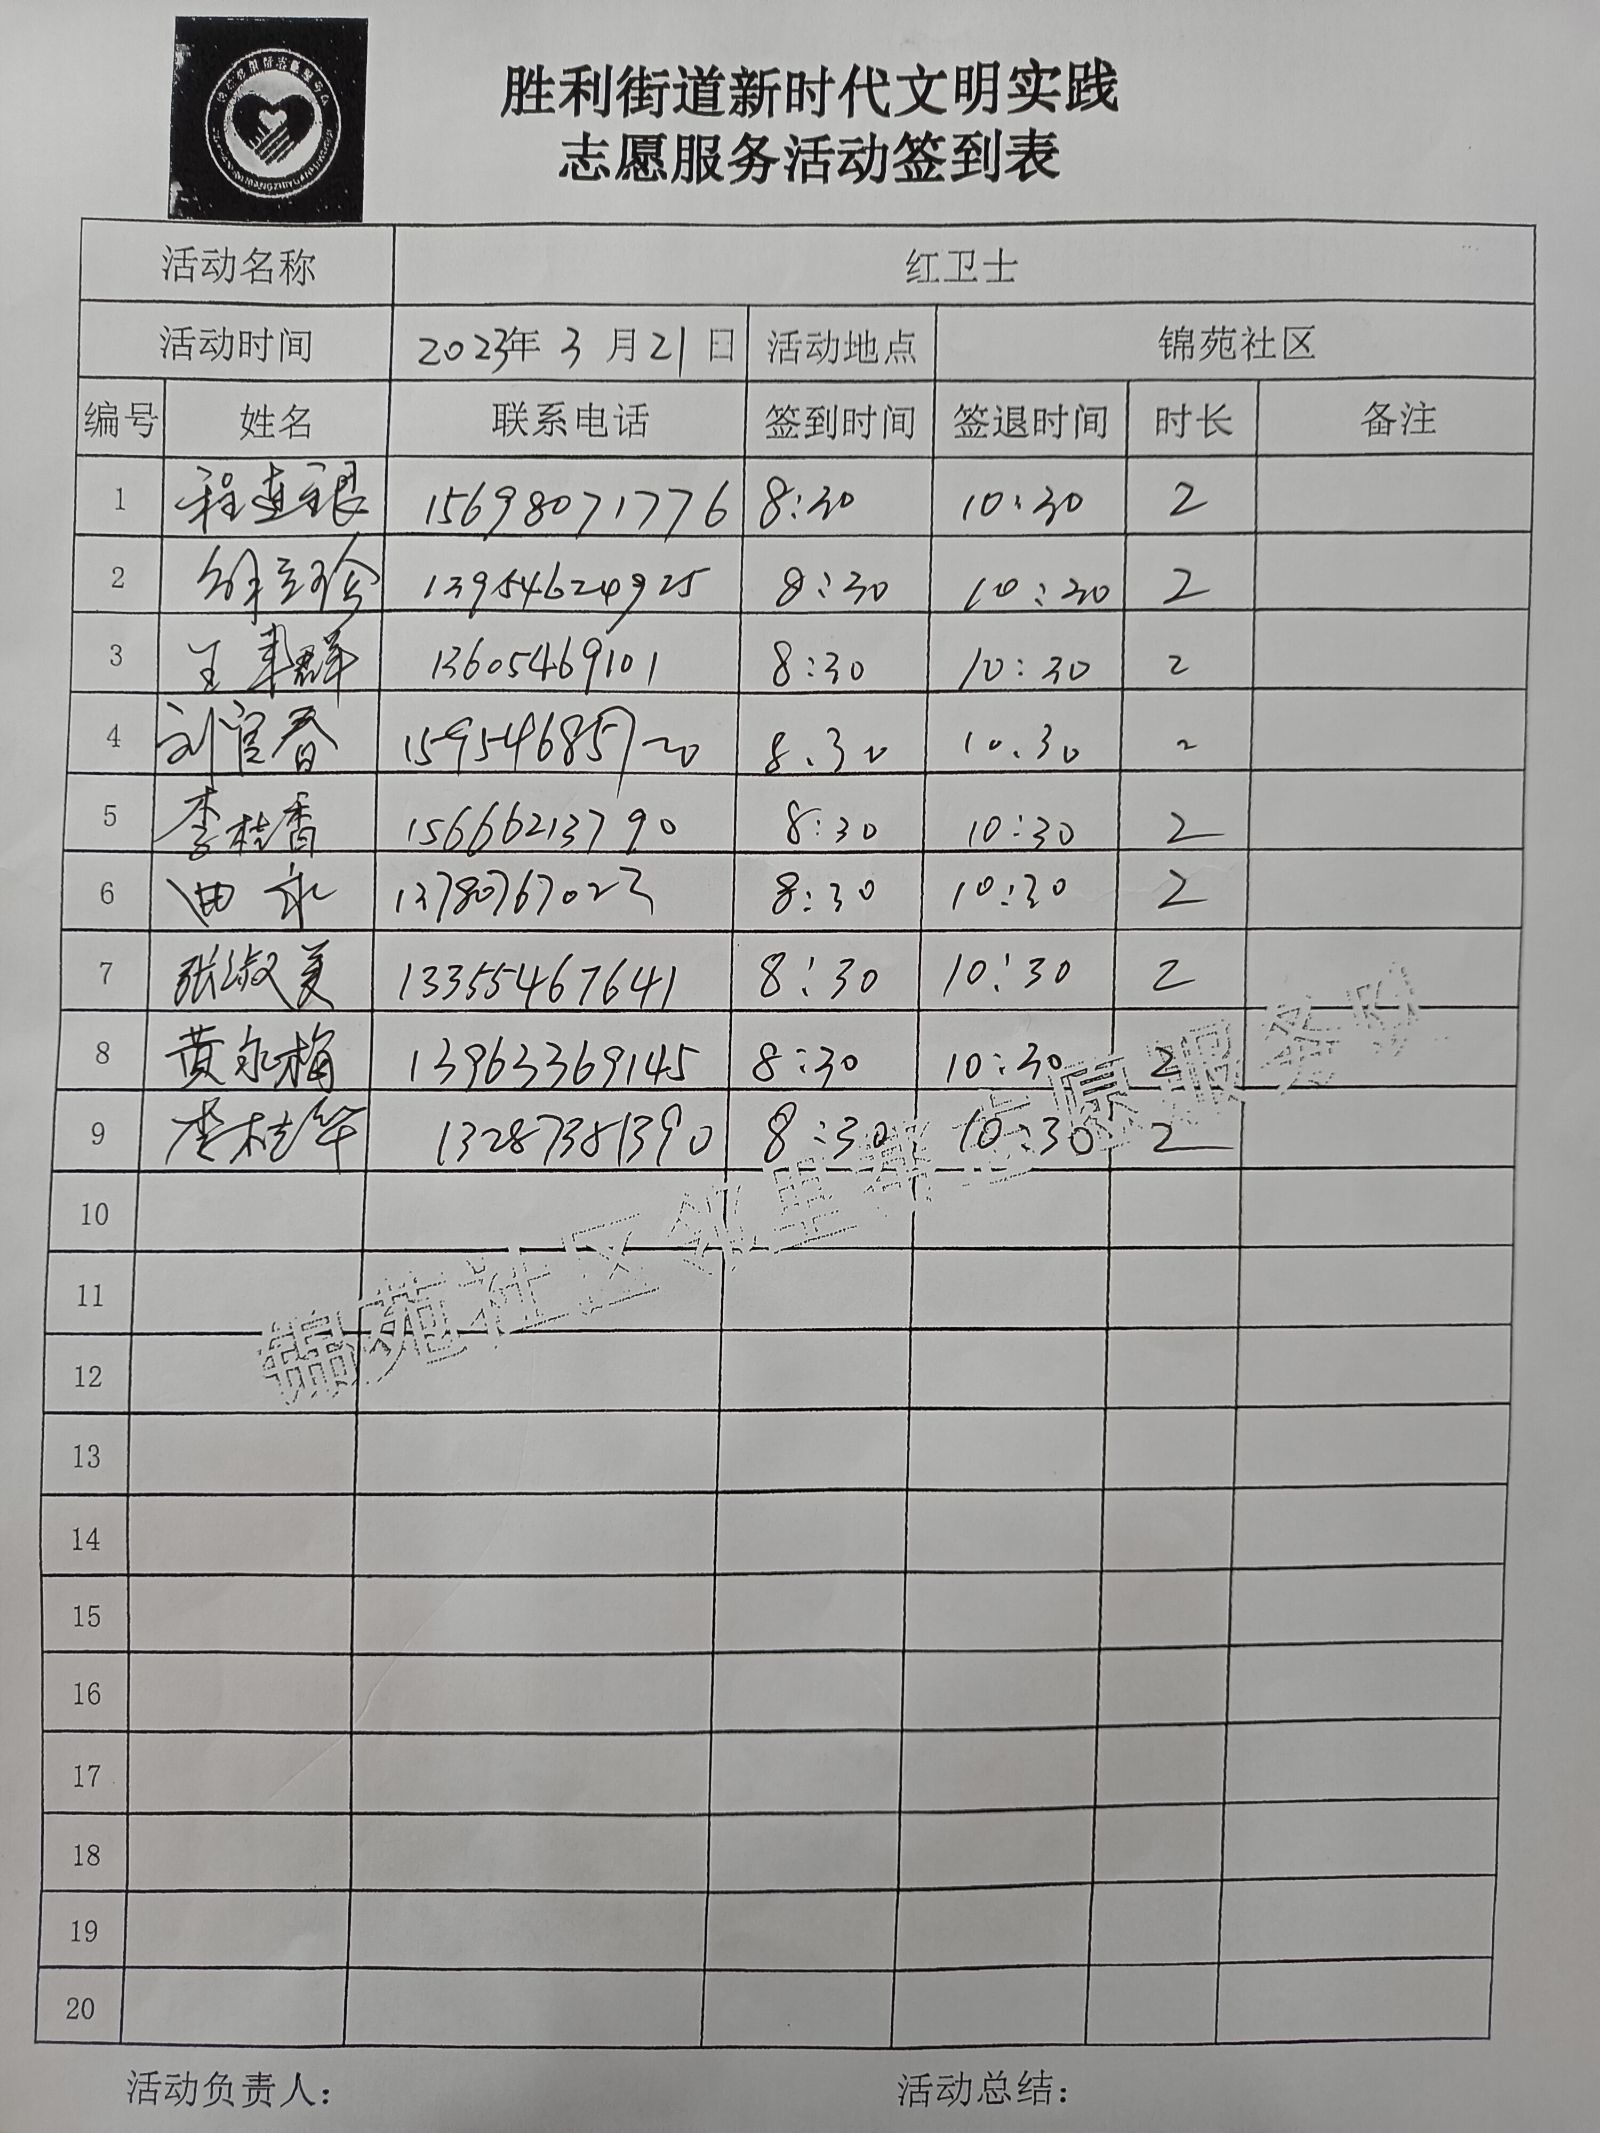 胜利街道新时代文明实践
志愿服务活动签到表
活动名称 红卫士
活动时间 2023年 3 月 21 日 活动地点 锦苑社区
编号 姓名 联系电话 签到时间 签退时间 时长 备注
1 程连银 15698071776 8:30 10:30 2
2 13954624925 8:30 10:30 2
3 王 群 13605469101 8:30 10:30 2
4 刘官春 15954685720 8.30 10.30 2
5 李桂香 15666213790 8:30 10:30 2
6 曲永 13780767023 8:30 10:30 2
7 张淑美 13355467641 8:30 10:30 2
8 黄永梅 13963369145 8:30 10:30 2
9 李桂华 13287381390 8:30 10:30 2
10
11
12
13
14
15
16
17
18
19
20
锦苑社区邻里帮志愿服务队
活动负责人： 活动总结：